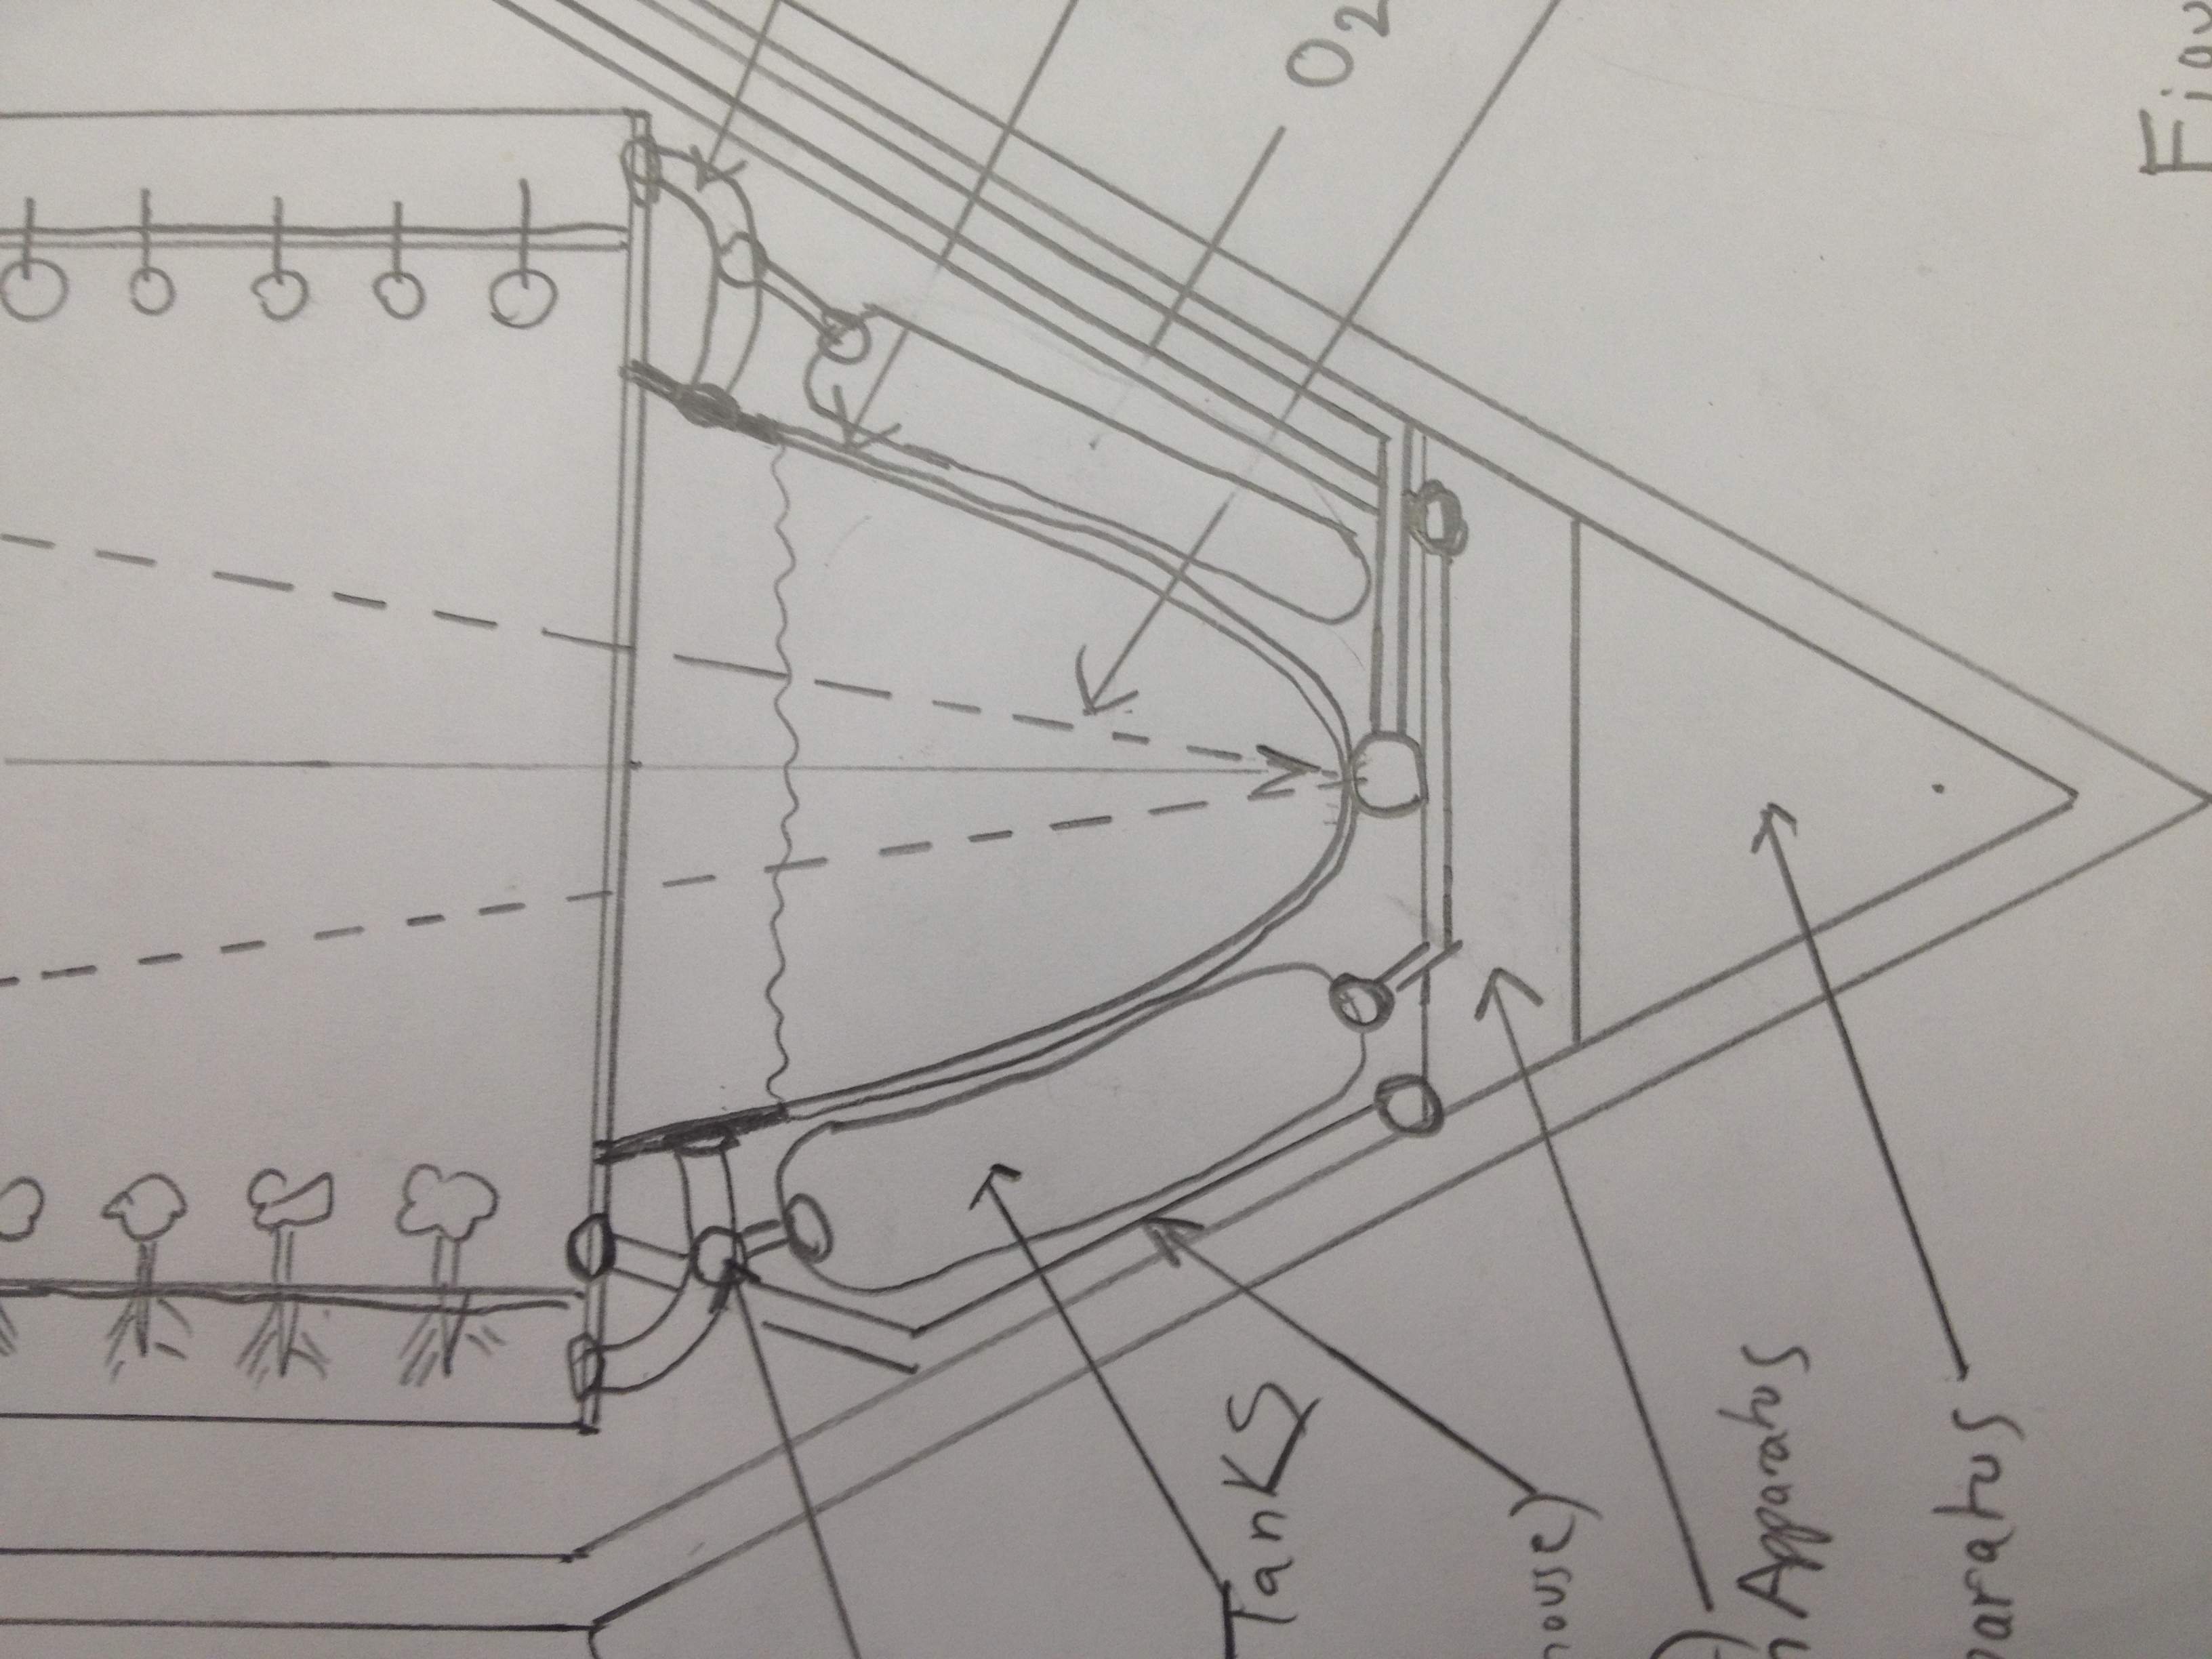 Tanks
O₂
house)
n Apparatus
paratus
Figu